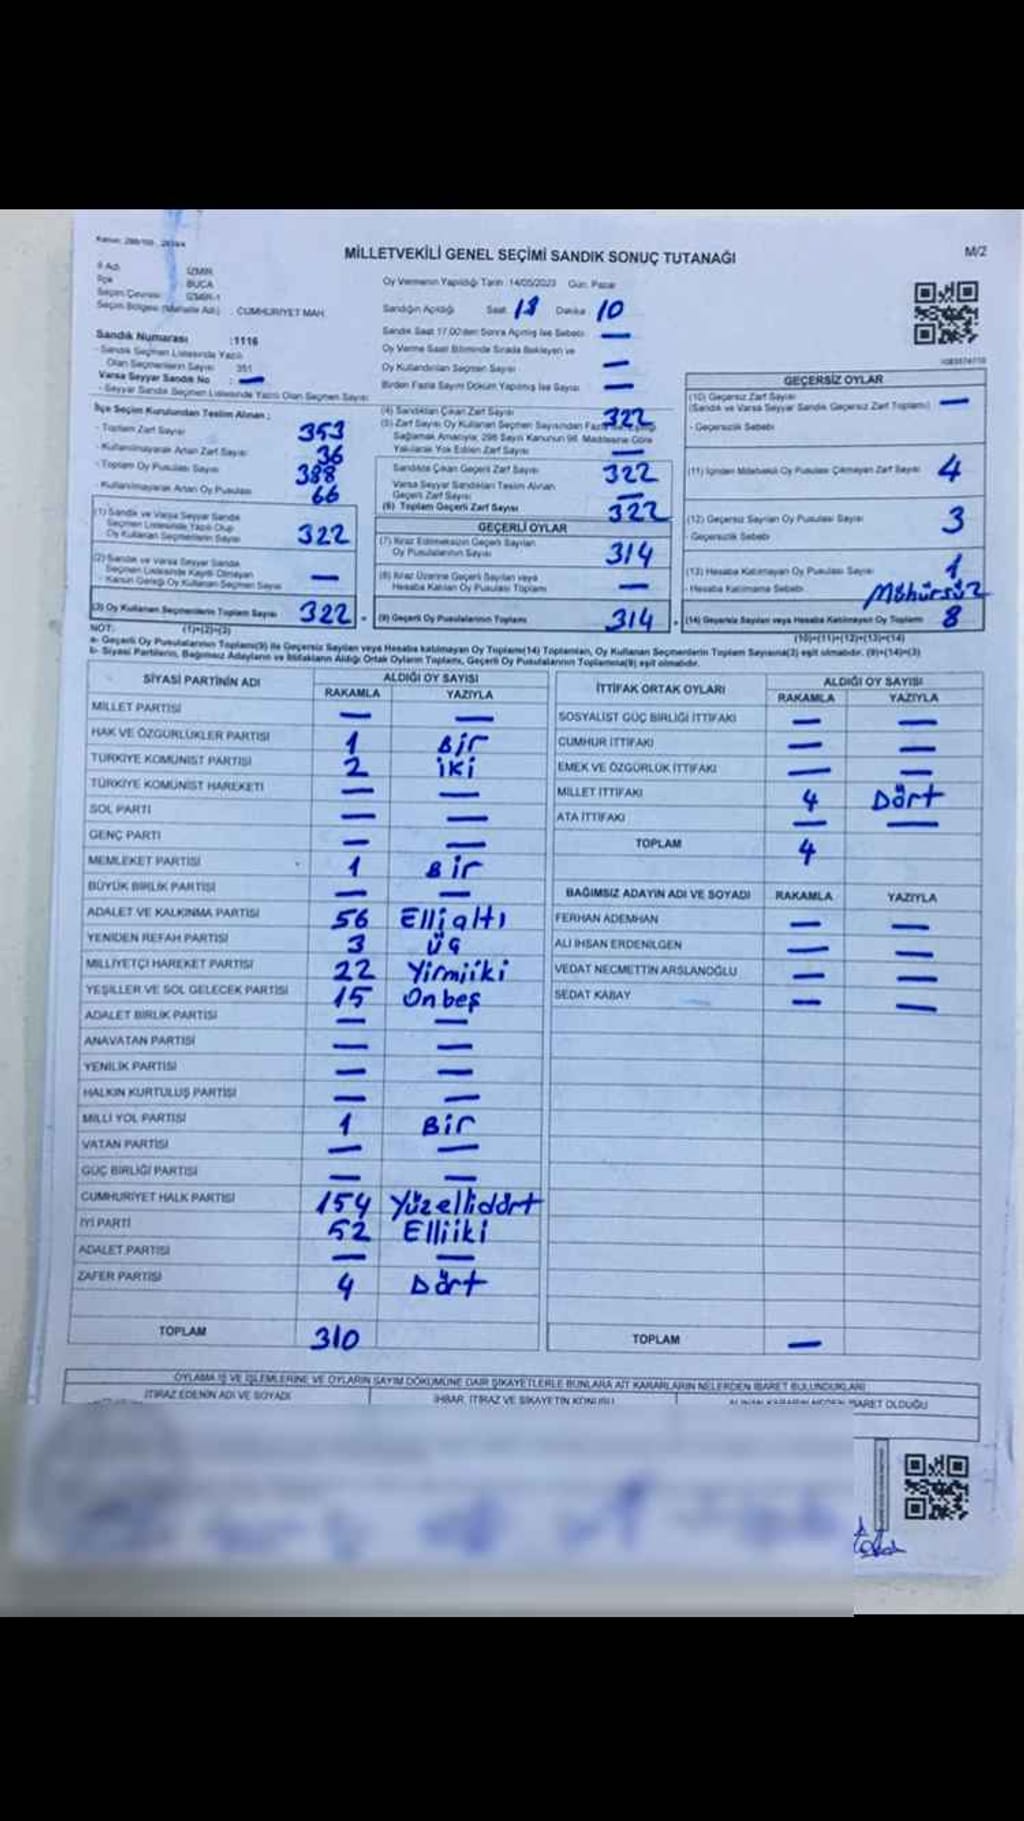 MİLLETVEKİLİ GENEL SEÇİMİ SANDIK SONUÇ TUTANAĞI
M/2
İl Adı İZMİR
İlçe BUCA
Seçim Çevresi İZMİR-1
Seçim Bölgesi (Mahalle Adı) : CUMHURİYET MAH.
Oy Vermenin Yapıldığı Tarih :14/05/2023 Gün: Pazar
Sandığın Açıldığı Saat 18 Dakika 10
Sandık Saat 17.00'den Sonra Açılmış İse Sebebi —
Oy Verme Saati Bitiminde Sırada Bekleyen ve
Oy Kullandırılan Seçmen Sayısı —
Birden Fazla Sayım Döküm Yapılmış İse Sayısı —
Sandık Numarası :1116
Sandık Seçmen Listesinde Yazılı
Olan Seçmenlerin Sayısı 351
Varsa Seyyar Sandık No : —
- Seyyar Sandık Seçmen Listesinde Yazılı Olan Seçmen Sayısı
İlçe Seçim Kurulundan Teslim Alınan :
- Toplam Zarf Sayısı 353
- Kullanılmayarak Artan Zarf Sayısı 36
- Toplam Oy Pusulası Sayısı 388
- Kullanılmayarak Artan Oy Pusulası 66
(1) Sandık ve Varsa Seyyar Sandık
Seçmen Listesinde Yazılı Olup
Oy Kullanan Seçmenlerin Sayısı 322
(2) Sandık ve Varsa Seyyar Sandık
Seçmen Listesinde Kayıtlı Olmayan
- Kanun Gereği Oy Kullanan Seçmen Sayısı —
(3) Oy Kullanan Seçmenlerin Toplam Sayısı 322
(1)+(2)=(3)
(4) Sandıktan Çıkan Zarf Sayısı 322
(5) Zarf Sayısı Oy Kullanan Seçmen Sayısından
Sağlamak Amacıyla, 298 Sayılı Kanunun 98. Maddesine Göre
Yakılarak Yok Edilen Zarf Sayısı —
Sandıkta Çıkan Geçerli Zarf Sayısı 322
Varsa Seyyar Sandıktan Teslim Alınan
Geçerli Zarf Sayısı —
(6) Toplam Geçerli Zarf Sayısı 322
GEÇERLİ OYLAR
(7) İtiraz Edilmeksizin Geçerli Sayılan
Oy Pusulalarının Sayısı 314
(8) İtiraz Üzerine Geçerli Sayılan veya
Hesaba Katılan Oy Pusulası Toplamı —
(9) Geçerli Oy Pusulalarının Toplamı 314
GEÇERSİZ OYLAR
(10) Geçersiz Zarf Sayısı —
(Sandık ve Varsa Seyyar Sandık Geçersiz Zarf Toplamı)
- Geçersizlik Sebebi
(11) İçinden Milletvekili Oy Pusulası Çıkmayan Zarf Sayısı 4
(12) Geçersiz Sayılan Oy Pusulası Sayısı 3
- Geçersizlik Sebebi
(13) Hesaba Katılmayan Oy Pusulası Sayısı 1
- Hesaba Katılmama Sebebi Mühürsüz
(14) Geçersiz Sayılan veya Hesaba Katılmayan Oy Toplamı 8
(10)+(11)+(12)+(13)=(14)
NOT:
a- Geçerli Oy Pusulalarının Toplamı(9) ile Geçersiz Sayılan veya Hesaba katılmayan Oy Toplamı(14) Toplamları, Oy Kullanan Seçmenlerin Toplam Sayısına(3) eşit olmalıdır. (9)+(14)=(3)
b- Siyasi Partilerin, Bağımsız Adayların ve İttifakların Aldığı Ortak Oyların Toplamı, Geçerli Oy Pusulalarının Toplamına(9) eşit olmalıdır.
SİYASİ PARTİNİN ADI ALDIĞI OY SAYISI
RAKAMLA YAZIYLA
MİLLET PARTİSİ — —
HAK VE ÖZGÜRLÜKLER PARTİSİ 1 Bir
TÜRKİYE KOMÜNİST PARTİSİ 2 iki
TÜRKİYE KOMÜNİST HAREKETİ — —
SOL PARTİ — —
GENÇ PARTİ — —
MEMLEKET PARTİSİ 1 Bir
BÜYÜK BİRLİK PARTİSİ — —
ADALET VE KALKINMA PARTİSİ 56 Elli altı
YENİDEN REFAH PARTİSİ 3 üç
MİLLİYETÇİ HAREKET PARTİSİ 22 Yirmiiki
YEŞİLLER VE SOL GELECEK PARTİSİ 15 Onbeş
ADALET BİRLİK PARTİSİ — —
ANAVATAN PARTİSİ — —
YENİLİK PARTİSİ — —
HALKIN KURTULUŞ PARTİSİ — —
MİLLİ YOL PARTİSİ 1 Bir
VATAN PARTİSİ — —
GÜÇ BİRLİĞİ PARTİSİ — —
CUMHURİYET HALK PARTİSİ 154 Yüzellidört
İYİ PARTİ 52 Elliiki
ADALET PARTİSİ — —
ZAFER PARTİSİ 4 Dört
TOPLAM 310
İTTİFAK ORTAK OYLARI ALDIĞI OY SAYISI
RAKAMLA YAZIYLA
SOSYALİST GÜÇ BİRLİĞİ İTTİFAKI — —
CUMHUR İTTİFAKI — —
EMEK VE ÖZGÜRLÜK İTTİFAKI — —
MİLLET İTTİFAKI 4 Dört
ATA İTTİFAKI — —
TOPLAM 4
BAĞIMSIZ ADAYIN ADI VE SOYADI RAKAMLA YAZIYLA
FERHAN ADEMHAN — —
ALİ İHSAN ERDENİLGEN — —
VEDAT NECMETTİN ARSLANOĞLU — —
SEDAT KABAY — —
TOPLAM —
OYLAMA İŞ VE İŞLEMLERİNE VE OYLARIN SAYIM DÖKÜMÜNE DAİR ŞİKAYETLERLE BUNLARA AİT KARARLARIN NELERDEN İBARET BULUNDUKLARI
İTİRAZ EDENİN ADI VE SOYADI İHBAR, İTİRAZ VE ŞİKAYETİN KONUSU İBARET OLDUĞU